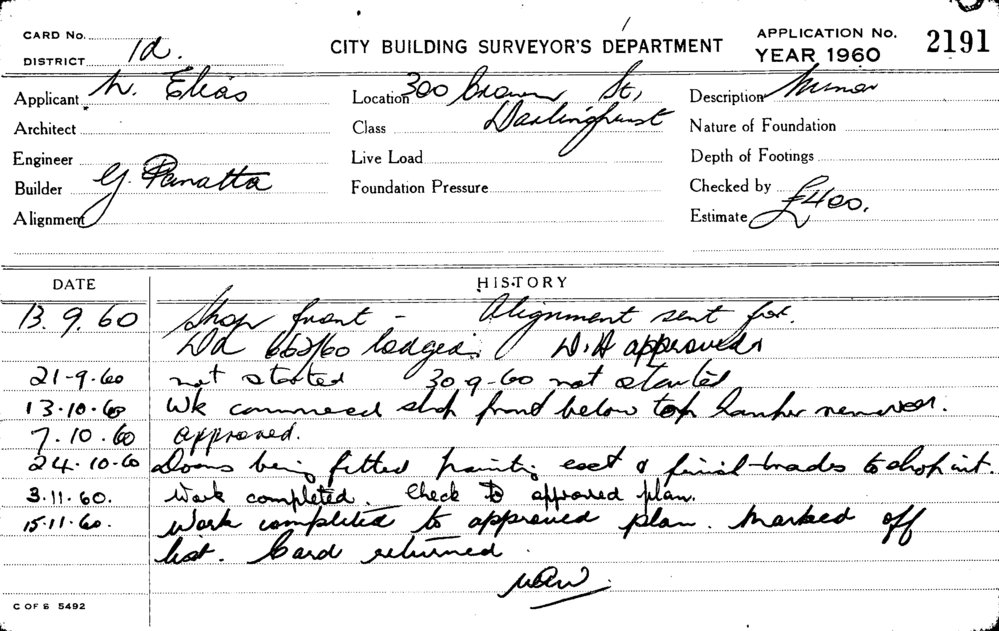 CARD No.
DISTRICT 1d.
CITY BUILDING SURVEYOR'S DEPARTMENT
APPLICATION No. 2191
YEAR 1960
Applicant N. Elias
Location 300 Crown St,
Description Minor
Architect
Class Darlinghurst
Nature of Foundation
Engineer
Live Load
Depth of Footings
Builder G. Panatta
Foundation Pressure
Checked by
Alignment
Estimate £400.
DATE HISTORY
13.9.60 Shop front - Alignment sent for.
Dd 662/60 lodged. D.A approved
21-9-60 not started 30-9-60 not started
13.10.60 Wk commenced shop front below top removed.
7.10.60 approved.
24.10-60 Doors being fitted & final trades to shop int.
3.11.60. Work completed. Check to approved plan.
15.11.60. Work completed to approved plan. Marked off
list. Card returned.
C OF S 5492